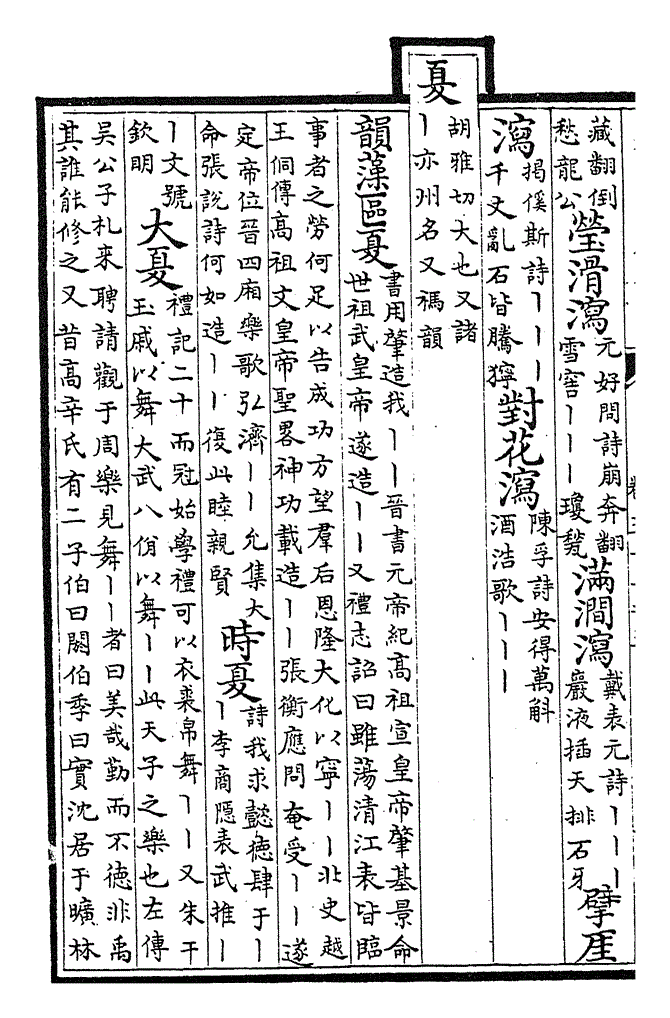 藏翻倒
愁龍公
瑩滑瀉
元好問詩崩奔翻
雪窖丨丨丨瓊甃
滿澗瀉
戴表元詩丨丨丨
巖液插天排石牙
擘厓
瀉
揭傒斯詩丨丨丨
千丈亂石皆騰獰
對花瀉
陳孚詩安得萬斛
酒浩歌丨丨丨
夏
胡雅切大也又諸
丨亦州名又禡韻
韻藻區夏
書用肇造我丨丨晉書元帝紀高祖宣皇帝肇基景命
世祖武皇帝遂造丨丨又禮志詔曰雖蕩清江表皆臨
事者之勞何足以告成功方望羣后恩隆大化以寧丨丨北史越
王侗傳高祖文皇帝聖畧神功載造丨丨張衡應問奄受丨丨遂
定帝位晉四廂樂歌弘濟丨丨允集大
命張說詩何如造丨丨復此睦親賢
時夏
詩我求懿德肆于丨
丨李商隱表武推丨
丨文號
欽明
大夏
禮記二十而冠始學禮可以衣裘帛舞丨丨又朱干
玉戚以舞大武八佾以舞丨丨此天子之樂也左傳
吳公子札來聘請觀于周樂見舞丨丨者曰美哉勤而不德非禹
其誰能修之又昔高辛氏有二子伯曰閼伯季曰實沈居于曠林